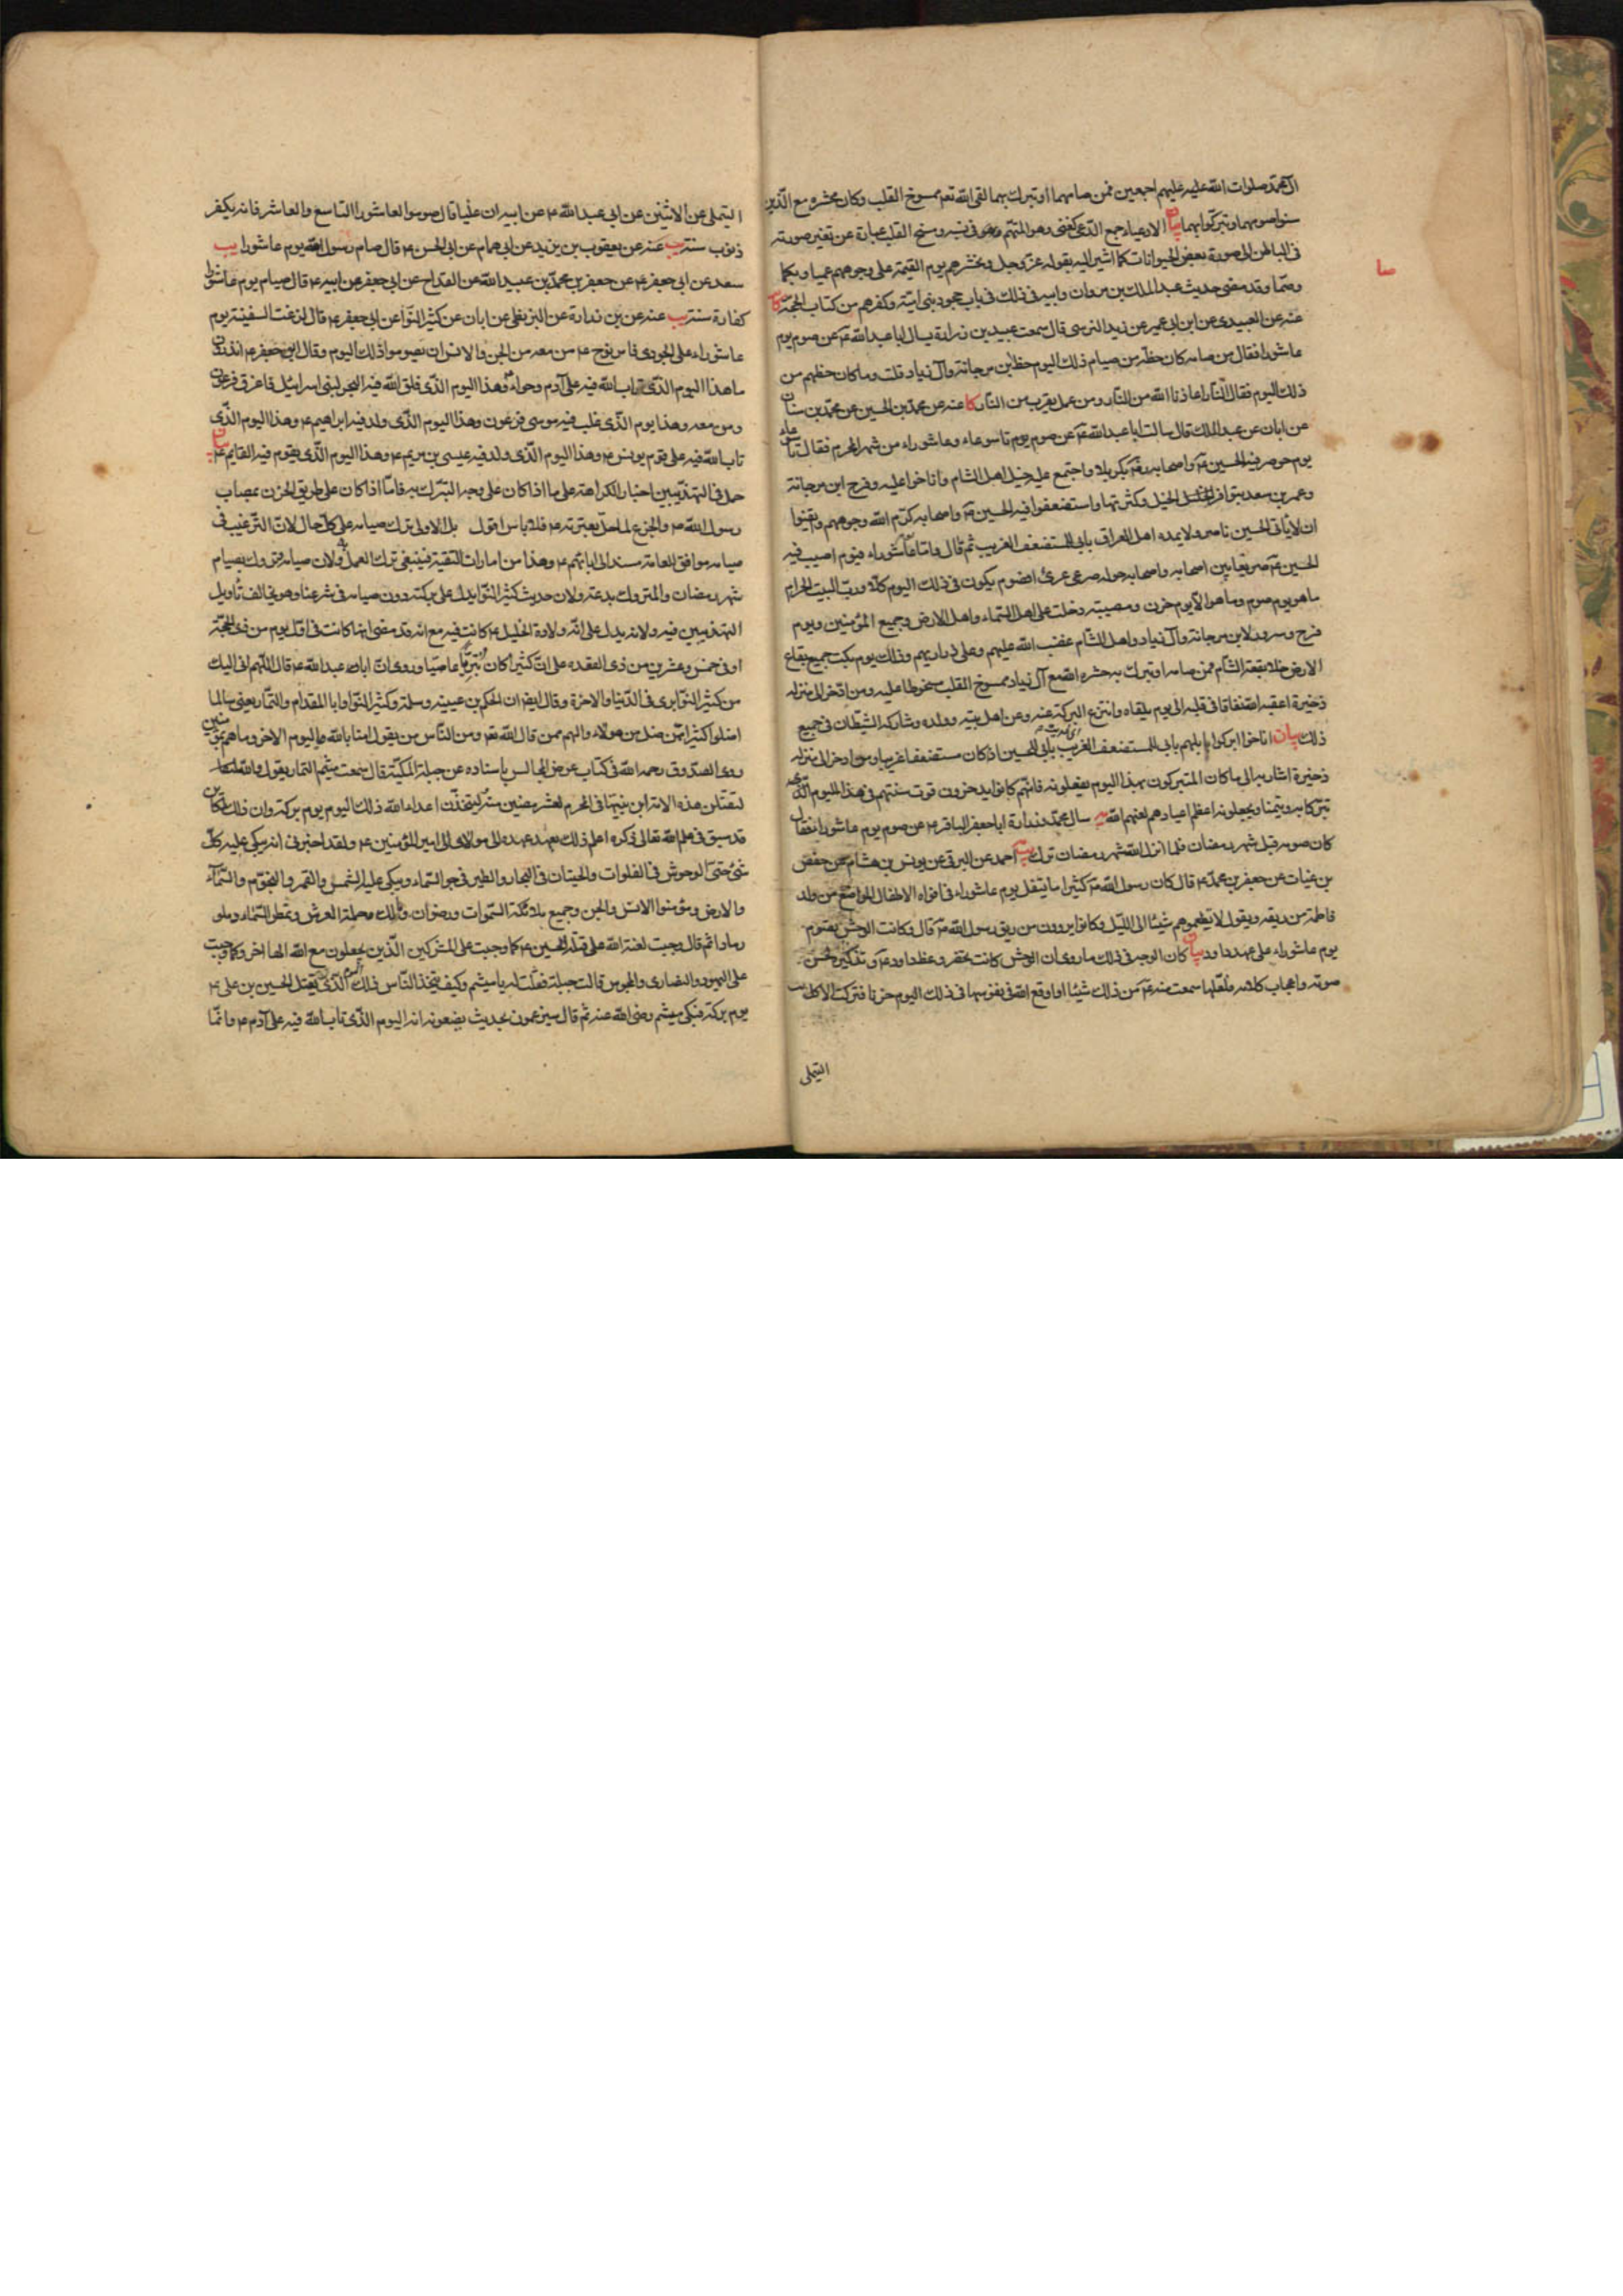 آل محمد صلوات الله عليه وعليهم اجمعين فمن صامهما او تبرك بهما لقى الله تعه ممسوخ القلب وكان محشره مع الذين
سنوا صومهما وتبركوا بهما بيان الادعياء جمع الدعى كغنى وهو المتهم فى نسبه ومسخ القلب عبارة عن تغير صورته
فى الباطن الى صورة بعض الحيوانات كما اشير اليه بقوله عز وجل ونحشرهم يوم القيمة على وجوههم عميا وبكما
وصما وقد مضى حديث عبد الملك بن مروان وابيه فى ذلك فى باب جحود بنى امية وكفرهم من كتاب الحجة كا
عنه عن العبيدى عن ابن ابى عمير عن زيد النرسى قال سمعت عبيد بن زرارة يسال ابا عبد الله ع عن صوم يوم
عاشورا فقال من صامه كان حظه من صيام ذلك اليوم حظ ابن مرجانة وآل زياد قلت وما كان حظهم من
ذلك اليوم فقال النار اعاذنا الله من النار ومن عمل يقرب من النار كا عنه عن محمد بن الحسين عن محمد بن سنان
عن ابان عن عبد الملك قال سالت ابا عبد الله ع عن صوم يوم تاسوعاء وعاشوراء من شهر المحرم فقال تاسوعاء
يوم حوصر فيه الحسين ع واصحابه بكربلا واجتمع عليه خيل اهل الشام واناخوا عليه وفرح ابن مرجانة
وعمر بن سعد بتوافر الخيل وكثرتها واستضعفوا فيه الحسين ع واصحابه كرم الله وجوههم وايقنوا
ان لا ياتى الحسين ناصر ولا يمده اهل العراق بابى المستضعف الغريب ثم قال واما عاشوراء فيوم اصيب فيه
الحسين ع صريعا بين اصحابه واصحابه حوله صرعى عرى افصوم يكون فى ذلك اليوم كلا ورب البيت الحرام
ما هو يوم صوم وما هو الا يوم حزن ومصيبة دخلت على اهل السماء واهل الارض وجميع المؤمنين ويوم
فرح وسرور لابن مرجانة وآل زياد واهل الشام غضب الله عليهم وعلى ذرياتهم وذلك يوم بكت جميع بقاع
الارض خلا بقعة الشام فمن صامه او تبرك به حشره الله مع آل زياد ممسوخ القلب مسخوطا عليه ومن ادخر الى منزله
ذخيرة اعقبه الله نفاقا فى قلبه الى يوم يلقاه وانتزع البركة عنه وعن اهل بيته وولده وشاركه الشيطان فى جميع
ذلك بيان اناخوا ابركوا ابلهم بابى المستضعف الغريب بابى الحسين اذ كان مستضعفا غريبا ومن ادخر الى منزله
ذخيرة اشار به الى ما كان المتبركون بهذا اليوم يفعلونه فانهم كانوا يدخرون قوت سنتهم فى هذا اليوم الذى
تبركا به وتيمنا ويجعلونه اعظم اعيادهم لعنهم الله يه سال محمد وزرارة ابا جعفر الباقر ع عن صوم يوم عاشورا فقال
كان صومه قبل شهر رمضان فلما انزل الله شهر رمضان ترك يب احمد عن البرقى عن يونس بن هشام عن حفص
بن غياث عن جعفر بن محمد ع قال كان رسول الله ص كثيرا ما يتفل يوم عاشوراء فى افواه الاطفال المراضع من ولد
فاطمة من ريقه ويقول لا تطعموهم شيئا الى الليل وكانوا يروون من ريق رسول الله ص قال وكانت الوحش تصوم
يوم عاشوراء على عهد داود بيان كان الوجه فى ذلك ما روى ان الوحش كانت تحضر وعظ داود ع وتذكيره لحسن
صوته واعجاب كلامه ولعلها سمعت منه ع من ذلك شيئا او اوقع الله فى نفوسها فى ذلك اليوم حزنا فتركت الاكل يب
التيملى
التيملى عن الاثنين عن ابى عبد الله ع عن ابيه ان عليا قال صوموا العاشورا التاسع والعاشر فانه يكفر
ذنوب سنة يب عنه عن يعقوب بن يزيد عن ابى همام عن ابى الحسن ع قال صام رسول الله يوم عاشورا يب
سعد عن ابى جعفر ع عن جعفر بن محمد بن عبيد الله عن القداح عن ابى جعفر عن ابيه ع قال صيام يوم عاشورا
كفارة سنة يب عنه عن بن زرارة عن البزنطى عن ابان عن كثير النوا عن ابى جعفر ع قال لزقت السفينة يوم
عاشوراء على الجودى فامر نوح ع من معه من الجن والانس ان يصوموا ذلك اليوم وقال ابو جعفر ع اتدرون
ما هذا اليوم الذى تاب الله فيه على آدم وحواء وهذا اليوم الذى فلق الله فيه البحر لبنى اسرائيل فاغرق فرعون
ومن معه وهذا يوم الذى غلب فيه موسى فرعون وهذا اليوم الذى ولد فيه ابراهيم ع وهذا اليوم الذى
تاب الله فيه على قوم يونس ع وهذا اليوم الذى ولد فيه عيسى بن مريم ع وهذا اليوم الذى يقوم فيه القايم ع بيان
حمل فى التهذيبين اخبار الكراهة على ما اذا كان على وجه التبرك به فاما اذا كان على طريق الحزن بمصاب
رسول الله ص والجزع لما حل بعترته ع فلا باس اقول بل الاولى ترك صيامه على كل حال لان الترغيب فى
صيامه موافق للعامة مسند الى ابائهم ع وهذا من امارات التقية فينبغى ترك العمل به ولان صيامه متروك بصيام
شهر رمضان والمتروك بدعة ولان حديث كثير النوا يدل على بركته دون صيامه فى شرعنا وهو يخالف تاويل
التهذيبين فيه ولانه يدل على انه ولادة الخليل ع كانت فيه مع انه قد مضى انها كانت فى اول يوم من ذى الحجة
او فى خمس وعشرين من ذى القعده على ان كثيرا كان بتريا عاميا وروى ان ابا عبد الله ع قال اللهم انى اليك
من كثير النوا برى فى الدنيا والاخرة وقال ايضا ان الحكم بن عيينة وسلمة وكثير النوا وابا المقدام والتمار يعنى سالما
اضلوا كثيرا ممن ضل من هولاء وانهم ممن قال الله تعه ومن الناس من يقول امنا بالله واليوم الاخر وما هم بمؤمنين
روى الصدوق رحمه الله فى كتاب عرض المجالس باسناده عن جبلة المكية قال سمعت ميثم التمار يقول والله
لتقتلن هذه الامة ابن نبيها فى المحرم لعشر مضين منه ليتخذن اعداء الله ذلك اليوم يوم بركة وان ذلك لكائن
قد سبق فى علم الله تعالى ذكره اعلم ذلك بعهد عهده الى مولاى امير المؤمنين ع ولقد اخبرنى انه يبكى عليه كل
شئ حتى الوحوش فى الفلوات والحيتان فى البحار والطير فى جو السماء ويبكى عليه الشمس والقمر والنجوم والسماء
والارض ومؤمنوا الانس والجن وجميع ملائكة السموات ورضوان ومالك وحملة العرش وتمطر السماء دما و
رمادا ثم قال وجبت لعنة الله على قتلة الحسين ع كما وجبت على المشركين الذين يجعلون مع الله الها اخر وكما وجبت
على اليهود والنصارى والمجوس قالت جبلة فقلت له يا ميثم وكيف يتخذ الناس ذلك اليوم الذى يقتل الحسين بن على ع
يوم بركة فبكى ميثم رضى الله عنه ثم قال سيزعمون بحديث يضعونه انه اليوم الذى تاب الله فيه على آدم ع وانما